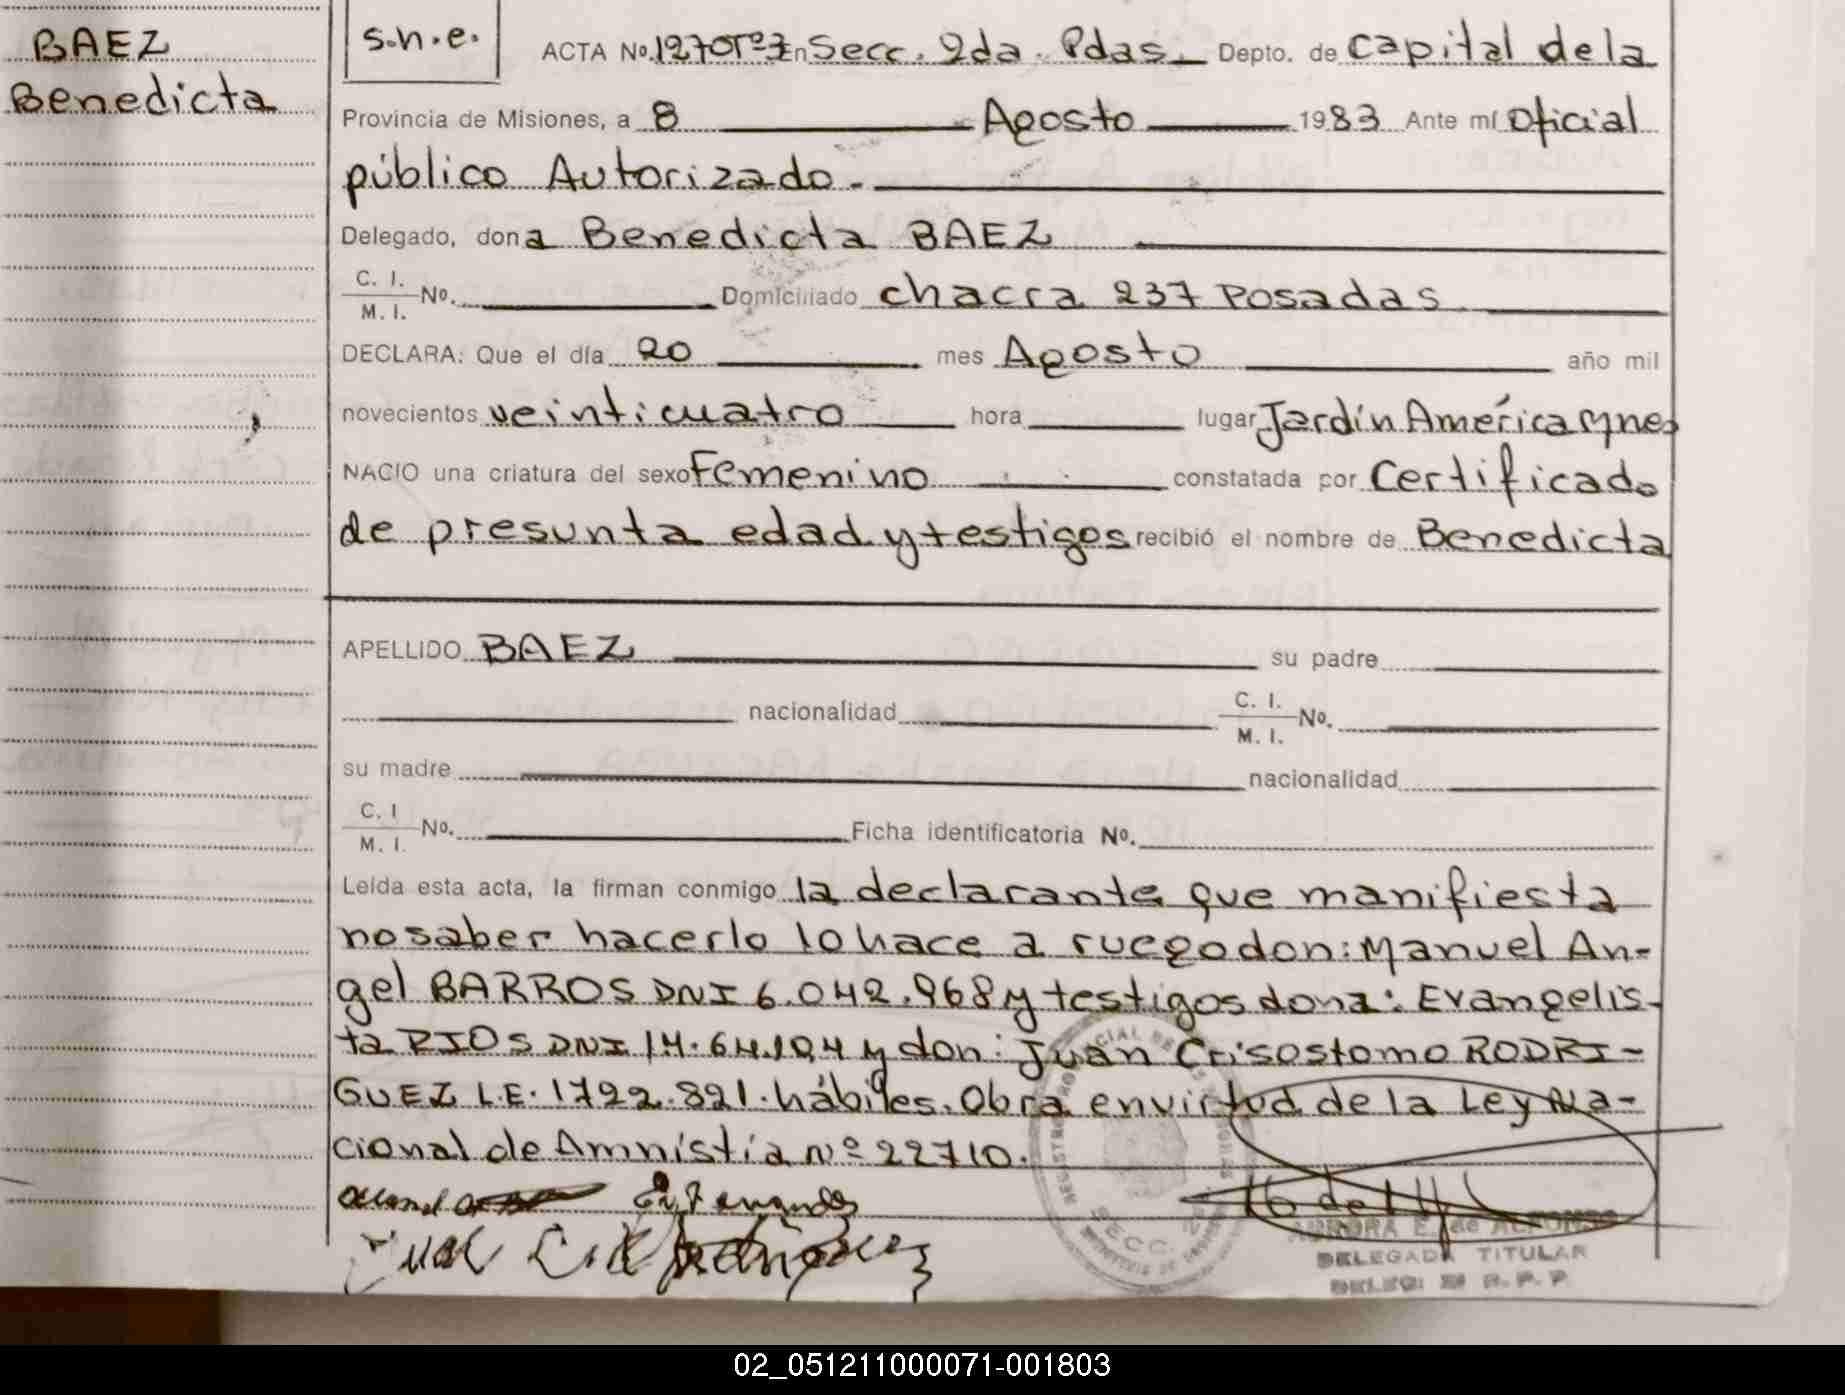 BAEZ
Benedicta
s.n.e.
ACTA No. 1270 Tº 7 En Secc. 2da. Pdas. Depto. de Capital de la
Provincia de Misiones, a 8 Agosto 1983 Ante mí Oficial
público Autorizado.
Delegado, dona Benedicta BAEZ
C. I.
M. I. No. Domiciliado chacra 237 Posadas
DECLARA: Que el día 20 mes Agosto año mil
novecientos veinticuatro hora lugar Jardín América Mnes
NACIO una criatura del sexo Femenino constatada por Certificado
de presunta edad y testigos recibió el nombre de Benedicta
APELLIDO BAEZ su padre
nacionalidad C. I.
M. I. No.
su madre nacionalidad
C. I
M. I. No. Ficha identificatoria No.
Leída esta acta, la firman conmigo la declarante que manifiesta
no saber hacerlo lo hace a ruego don: Manuel An-
gel BARROS DNI 6.042.968 y testigos dona: Evangelis-
ta RIOS DNI 14.641.04 y don: Juan Crisostomo RODRI-
GUEZ L.E. 1722.821. hábiles. Obra en virtud de la Ley Na-
cional de Amnistía nº 22710.
AURORA E. de ALFONSO
DELEGADA TITULAR
R. P. P.
02_051211000071-001803